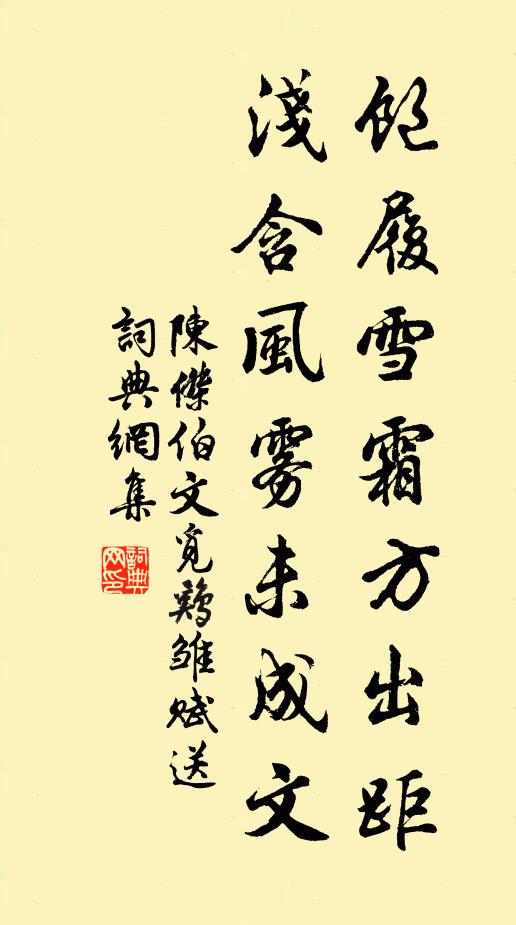 飽履雪霜方出距
淺含風雾未成文
陳傑伯文覓鷄雏賦送
詞典網集
詞典网印